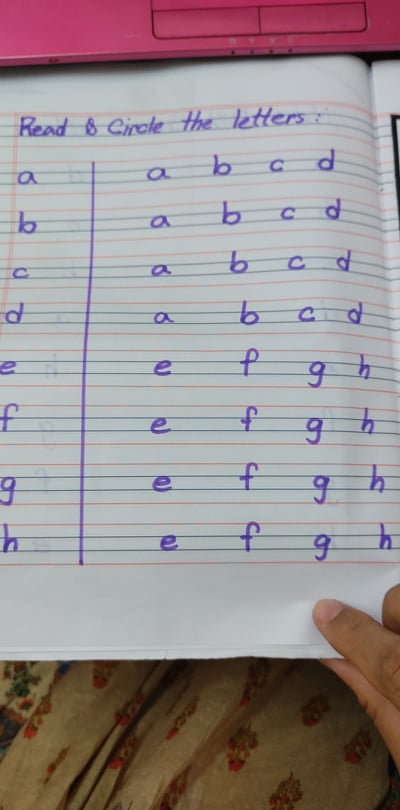 Read & Circle the letters:
a a b c d
b a b c d
c a b c d
d a b c d
e e f g h
f e f g h
g e f g h
h e f g h